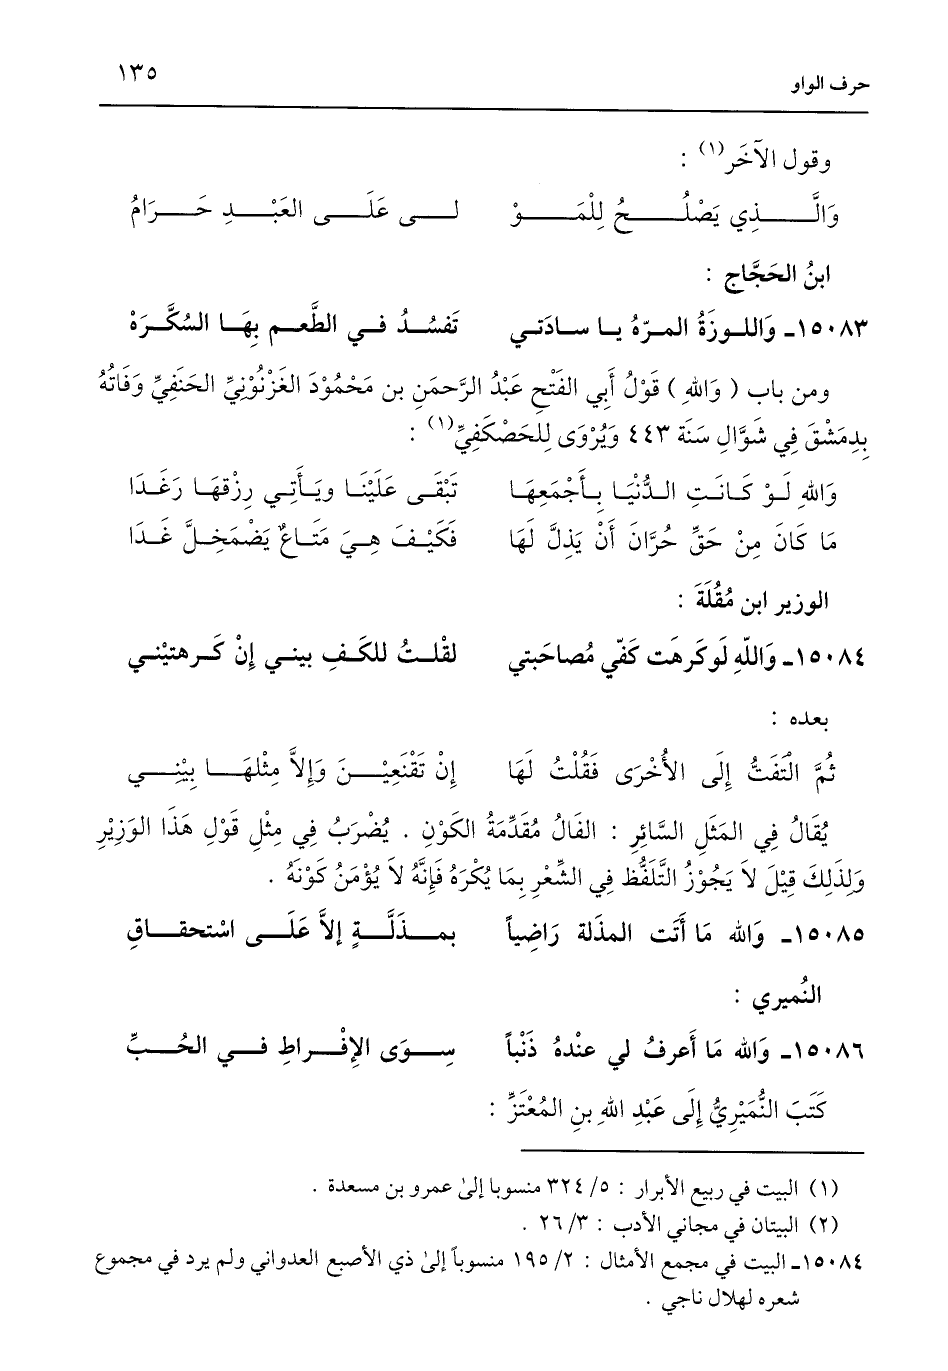 حرف الواو ١٣٥
وقول الآخَر(١) :
وَالَّـــــذِي يَصْلُـــــحُ لِلْمَـــــوْ لـــى عَلَـــى العَبْـــدِ حَـــرَامُ
ابنُ الحَجَّاج :
١٥٠٨٣ـ وَاللـوزَةُ المـرّهُ يـا سـادَتي تَفسُـدُ فـي الطَّعـم بِهَـا السُكَّـرَهْ
ومن باب ( وَاللهِ ) قَوْلُ أَبِي الفَتْحِ عَبْدُ الرَّحمَنِ بن مَحْمُوْدَ الغَزْنُوْنِيِّ الحَنَفِيِّ وَفَاتُهُ
بِدِمَشْقَ فِي شَوَّالِ سَنَة ٤٤٣ وَيُرْوَى لِلحَصْكَفِيِّ(١) :
وَاللهِ لَـوْ كَـانَـتِ الـدُّنْيَـا بِـأَجْمَعِهَـا تَبْقَـى عَلَيْنَـا ويَـأَتِـي رِزْقهَـا رَغَـدَا
مَا كَانَ مِنْ حَقِّ حُرَّانَ أَنْ يَذِلَّ لَهَا فَكَيْـفَ هِـيَ مَتَـاعٌ يَضْمَحِـلَّ غَـدَا
الوزير ابن مُقُلَةَ :
١٥٠٨٤ـ وَاللّهِ لَو كَرهَت كَفّي مُصاحَبتي لقْلـتُ للكَـفِ بينـي إِنْ كَـرهتيْنـي
بعده :
ثُمَّ الْتَفَتُّ إِلَى الأُخْرَى فَقُلْتُ لَهَا إِنْ تَقْنَعِيْـــنَ وَإِلاَّ مِثْلهَـــا بِيْنِـــي
يُقَالُ فِي المَثَلِ السَّائِرِ : الفَالُ مُقَدِّمَةُ الكَوْنِ . يُضْرَبُ فِي مِثْلِ قَوْلِ هَذَا الوَزِيْرِ
وَلِذَلِكَ قِيْلَ لاَ يَجُوْزُ التَّلَفُّظ فِي الشِّعْرِ بِمَا يُكْرَهُ فَإِنَّهُ لاَ يُؤْمَنُ كَوْنَهُ .
١٥٠٨٥ـ وَالله مَا أَتَت المذلة رَاضِياً بمـــذَلَّـــةٍ إلاَّ عَلَـــى اسْتحقـــاقِ
النُميري :
١٥٠٨٦ـ وَالله مَا أَعرفُ لي عنْدهُ ذَنْباً سِـــوَى الإِفْـــراطِ فـــي الحُـــبِّ
كَتَبَ النُّمَيْرِيُّ إِلَى عَبْدِ اللهِ بنِ المُعْتَزِّ :
(١) البيت في ربيع الأبرار : ٥/ ٣٢٤ منسوبا إلى عمرو بن مسعدة .
(٢) البيتان في مجاني الأدب : ٣/ ٢٦ .
١٥٠٨٤ـ البيت في مجمع الأمثال : ٢/ ١٩٥ منسوباً إلى ذي الأصبع العدواني ولم يرد في مجموع
شعره لهلال ناجي .